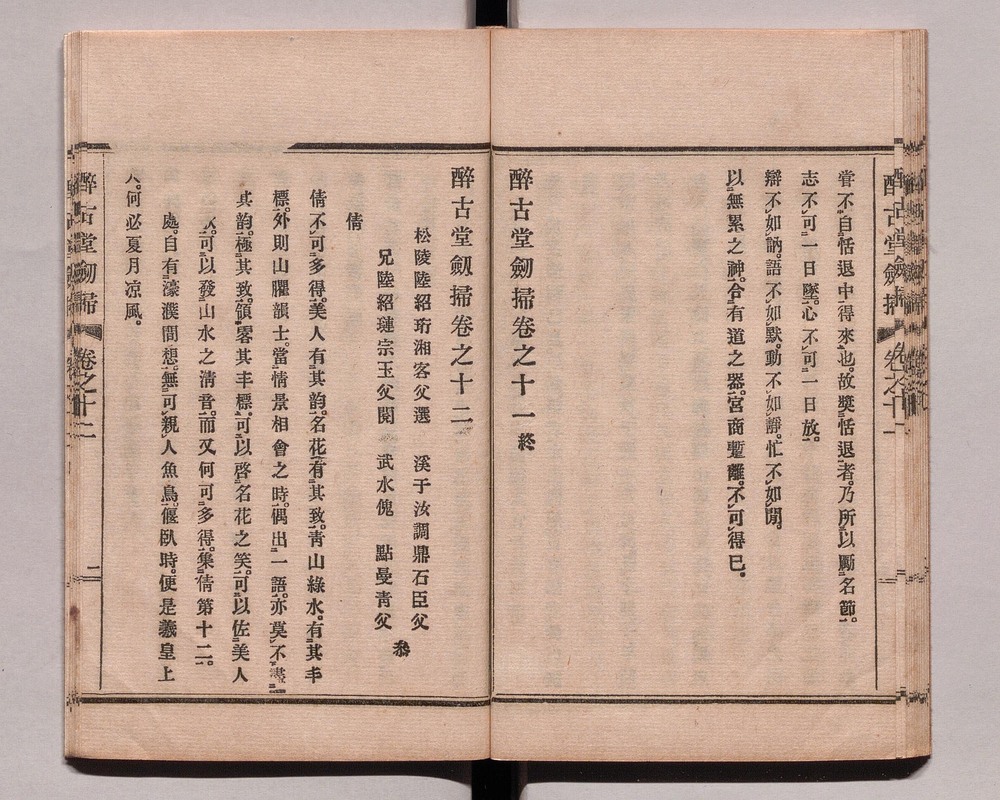 醉古堂劒掃
卷之十一
嘗不自恬退中得來也。故奬恬退者。乃所以勵名節。
志不可一日墜。心不可一日放。
辯不如訥。語不如默。動不如靜。忙不如閒。
以無累之神。合有道之器。宮商蹔離。不可得已。
醉古堂劒掃卷之十一終
醉古堂劒掃卷之十二
松陵陸紹珩湘客父選　溪于汝調鼎石臣父
兄陸紹璉宗玉父閱　武水傀　點曼靑父
叅
倩
倩不可多得。美人有其韵。名花有其致。靑山綠水。有其丰
標。外則山臞韻士。當情景相會之時。偶出一語。亦莫不盡
其韵。極其致。領畧其丰標。可以啓名花之笑。可以佐美人
可以發山水之淸音。而又何可多得。集倩第十二。
處。自有濠濮間想。無可親人魚鳥。偃臥時。便是羲皇上
人。何必夏月凉風。
醉古堂劒掃
卷之十二
二